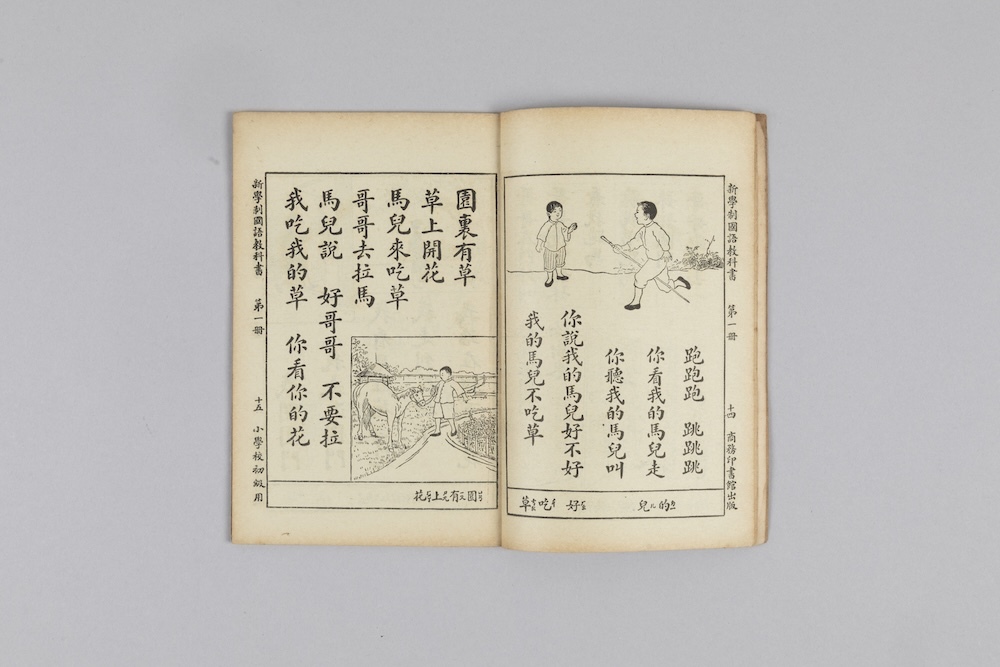 新學制國語教科書 第一冊 十四 商務印書館出版
跑跑跑 跳跳跳
你看我的馬兒走
你聽我的馬兒叫
你說我的馬兒好不好
我的馬兒不吃草
的 兒 好 吃 草
園裏有草
草上開花
馬兒來吃草
哥哥去拉馬
馬兒說 好哥哥 不要拉
我吃我的草 你看你的花
園 有 上 花
新學制國語教科書 第一冊 十五 小學校初級用